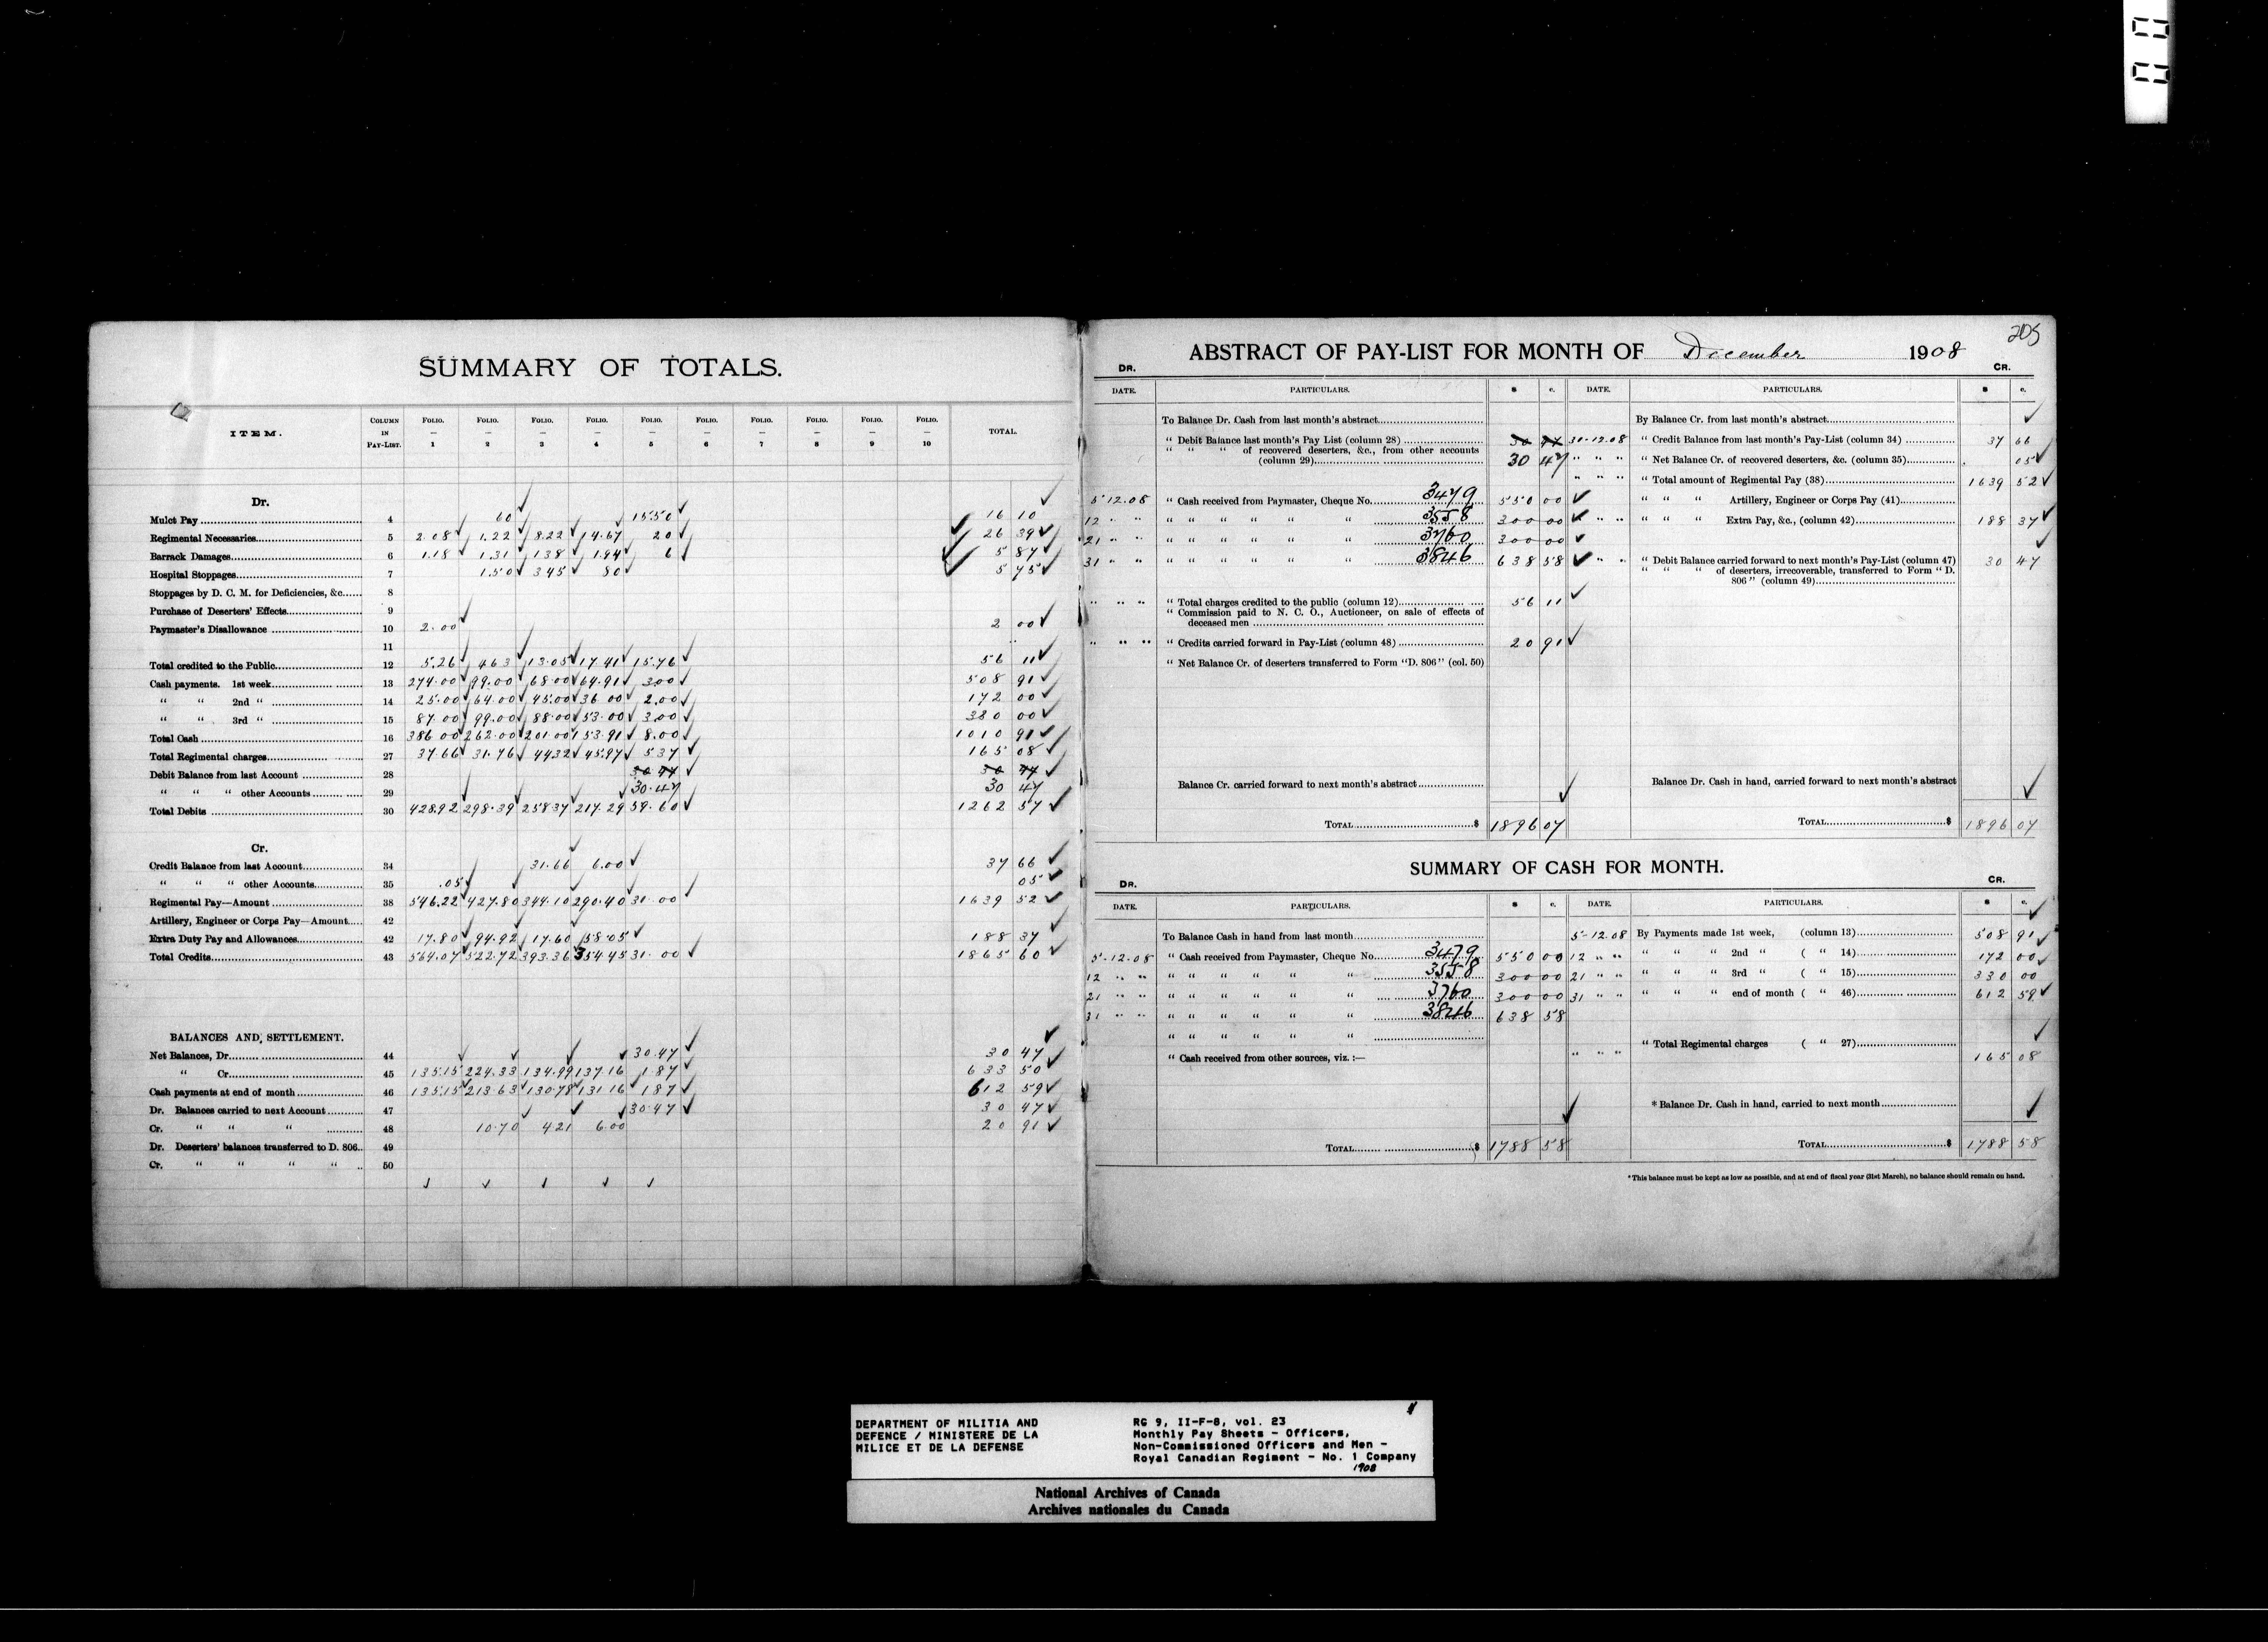 205
SUMMARY OF TOTALS.
ITEM. COLUMN IN PAY-LIST. FOLIO. – 1 FOLIO. – 2 FOLIO. – 3 FOLIO. – 4 FOLIO. – 5 FOLIO. – 6 FOLIO. – 7 FOLIO. – 8 FOLIO. – 9 FOLIO. – 10 TOTAL.
Dr.
Mulct Pay 4 60 15.50 16 10
Regimental Necessaries 5 2.08 1.22 8.22 14.67 20 26 39
Barrack Damages 6 1.18 1.31 1.38 1.94 6 5 87
Hospital Stoppages 7 1.50 3.45 80 5 75
Stoppages by D. C. M. for Deficiencies, &c. 8
Purchase of Deserters' Effects 9
Paymaster's Disallowance 10 2.00 2 00
11
Total credited to the Public 12 5.26 4.63 13.05 17.41 15.76 56 11
Cash payments. 1st week 13 274.00 99.00 68.00 64.91 3.00 508 91
“ “ 2nd “ 14 25.00 64.00 45.00 36 00 2.00 172 00
“ “ 3rd “ 15 87.00 99.00 88.00 53.00 3.00 330 00
Total Cash 16 386 00 262.00 201.00 153.91 8.00 1010 91
Total Regimental charges 27 37.66 31.76 44.32 45.97 5.37 165 08
Debit Balance from last Account 28 30 47 30 47
“ “ “ other Accounts 29 30.47 30 47
Total Debits 30 428.92 298.39 258.37 217.29 59.60 1262 57
Cr.
Credit Balance from last Account 34 31.66 6.00 37 66
“ “ “ other Accounts 35 .05 05
Regimental Pay—Amount 38 546.22 427.80 344.10 290.40 31.00 1639 52
Artillery, Engineer or Corps Pay—Amount 42
Extra Duty Pay and Allowances 42 17.80 94.92 17.60 58.05 188 37
Total Credits 43 564.07 522.72 393.36 354.45 31.00 1865 60
BALANCES AND SETTLEMENT.
Net Balances, Dr. 44 30.47 30 47
“ Cr. 45 135.15 224.33 134.99 137.16 1.87 633 50
Cash payments at end of month 46 135.15 213.63 130.78 131.16 1.87 612 59
Dr. Balances carried to next Account 47 30.47 30 47
Cr. “ “ “ 48 10.70 4.21 6.00 20 91
Dr. Deserters' balances transferred to D. 806.. 49
Cr. “ “ “ “ 50
ABSTRACT OF PAY-LIST FOR MONTH OF December 1908
DR. CR.
DATE. PARTICULARS. $ c. DATE. PARTICULARS. $ c.
To Balance Dr. Cash from last month's abstract By Balance Cr. from last month's abstract
“ Debit Balance last month's Pay List (column 28) 30 47 30-12.08 “ Credit Balance from last month's Pay-List (column 34) 37 66
“ “ “ of recovered deserters, &c., from other accounts
(column 29) 30 47 “ “ “ “ Net Balance Cr. of recovered deserters, &c. (column 35) 05
“ “ “ “ Total amount of Regimental Pay (38) 1639 52
5 12.08 “ Cash received from Paymaster, Cheque No. 3479 550 00 “ “ “ Artillery, Engineer or Corps Pay (41)
12 “ “ “ “ “ “ “ “ 3558 300 00 “ “ “ “ “ Extra Pay, &c., (column 42) 188 37
21 “ “ “ “ “ “ “ “ 3760 300 00
31 “ “ “ “ “ “ “ “ 3846 638 58 “ “ “ Debit Balance carried forward to next month's Pay-List (column 47) 30 47
“ “ “ of deserters, irrecoverable, transferred to Form “D.
806” (column 49)
“ “ “ “ Total charges credited to the public (column 12) 56 11
“ Commission paid to N. C. O., Auctioneer, on sale of effects of
deceased men
“ “ “ “ Credits carried forward in Pay-List (column 48) 20 91
“ Net Balance Cr. of deserters transferred to Form “D. 806” (col. 50)
Balance Cr. carried forward to next month's abstract Balance Dr. Cash in hand, carried forward to next month's abstract
TOTAL $ 1896 07 TOTAL $ 1896 07
SUMMARY OF CASH FOR MONTH.
DR. CR.
DATE. PARTICULARS. $ c. DATE. PARTICULARS. $ c.
To Balance Cash in hand from last month 5-12.08 By Payments made 1st week, (column 13) 508 91
5-12.08 “ Cash received from Paymaster, Cheque No. 3479 550 00 12 “ “ “ “ “ 2nd “ ( “ 14) 172 00
12 “ “ “ “ “ “ “ “ 3558 300 00 21 “ “ “ “ “ 3rd “ ( “ 15) 330 00
21 “ “ “ “ “ “ “ “ 3760 300 00 31 “ “ “ “ “ end of month ( “ 46) 612 59
31 “ “ “ “ “ “ “ “ 3846 638 58
“ “ “ “ “ “
“ Cash received from other sources, viz. :— “ “ “ “ Total Regimental charges ( “ 27) 165 08
* Balance Dr. Cash in hand, carried to next month
TOTAL $ 1788 58 TOTAL $ 1788 58
* This balance must be kept as low as possible, and at end of fiscal year (31st March), no balance should remain on hand.
DEPARTMENT OF MILITIA AND
DEFENCE / MINISTERE DE LA
MILICE ET DE LA DEFENSE
RG 9, II-F-8, vol. 23
Monthly Pay Sheets - Officers,
Non-Commissioned Officers and Men -
Royal Canadian Regiment - No. 1 Company
1908
National Archives of Canada
Archives nationales du Canada